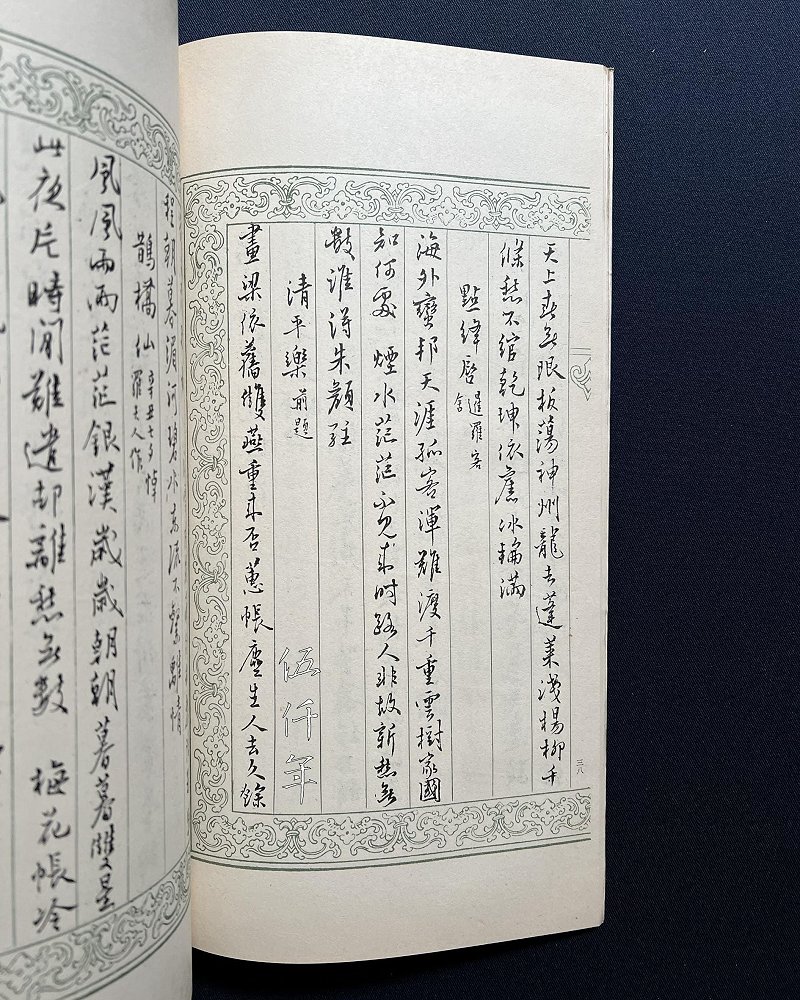 天上春無限板蕩神州龍去蓬萊淺楊柳千
條愁不綰乾坤依舊冰輪滿
點絳唇 暹羅客
舍
海外蠻邦天涯孤客渾難渡千重雲樹家國
知何處 煙水茫茫不見來時路人非故新愁無
數誰得朱顏駐
清平樂 前題
畫梁依舊雙燕重來否蕙帳塵生人去久餘
三八
伍仟年
程朝暮湄河碧水東流不繫離情
鵲橋仙 辛丑七夕悼
羅夫人作
風風雨雨茫茫銀漢歲歲朝朝暮暮雙星
此夜片時間難遣却離愁無數 梅花帳冷